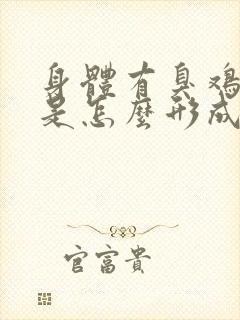 身體有臭鸡
是怎麼形成
官富貴